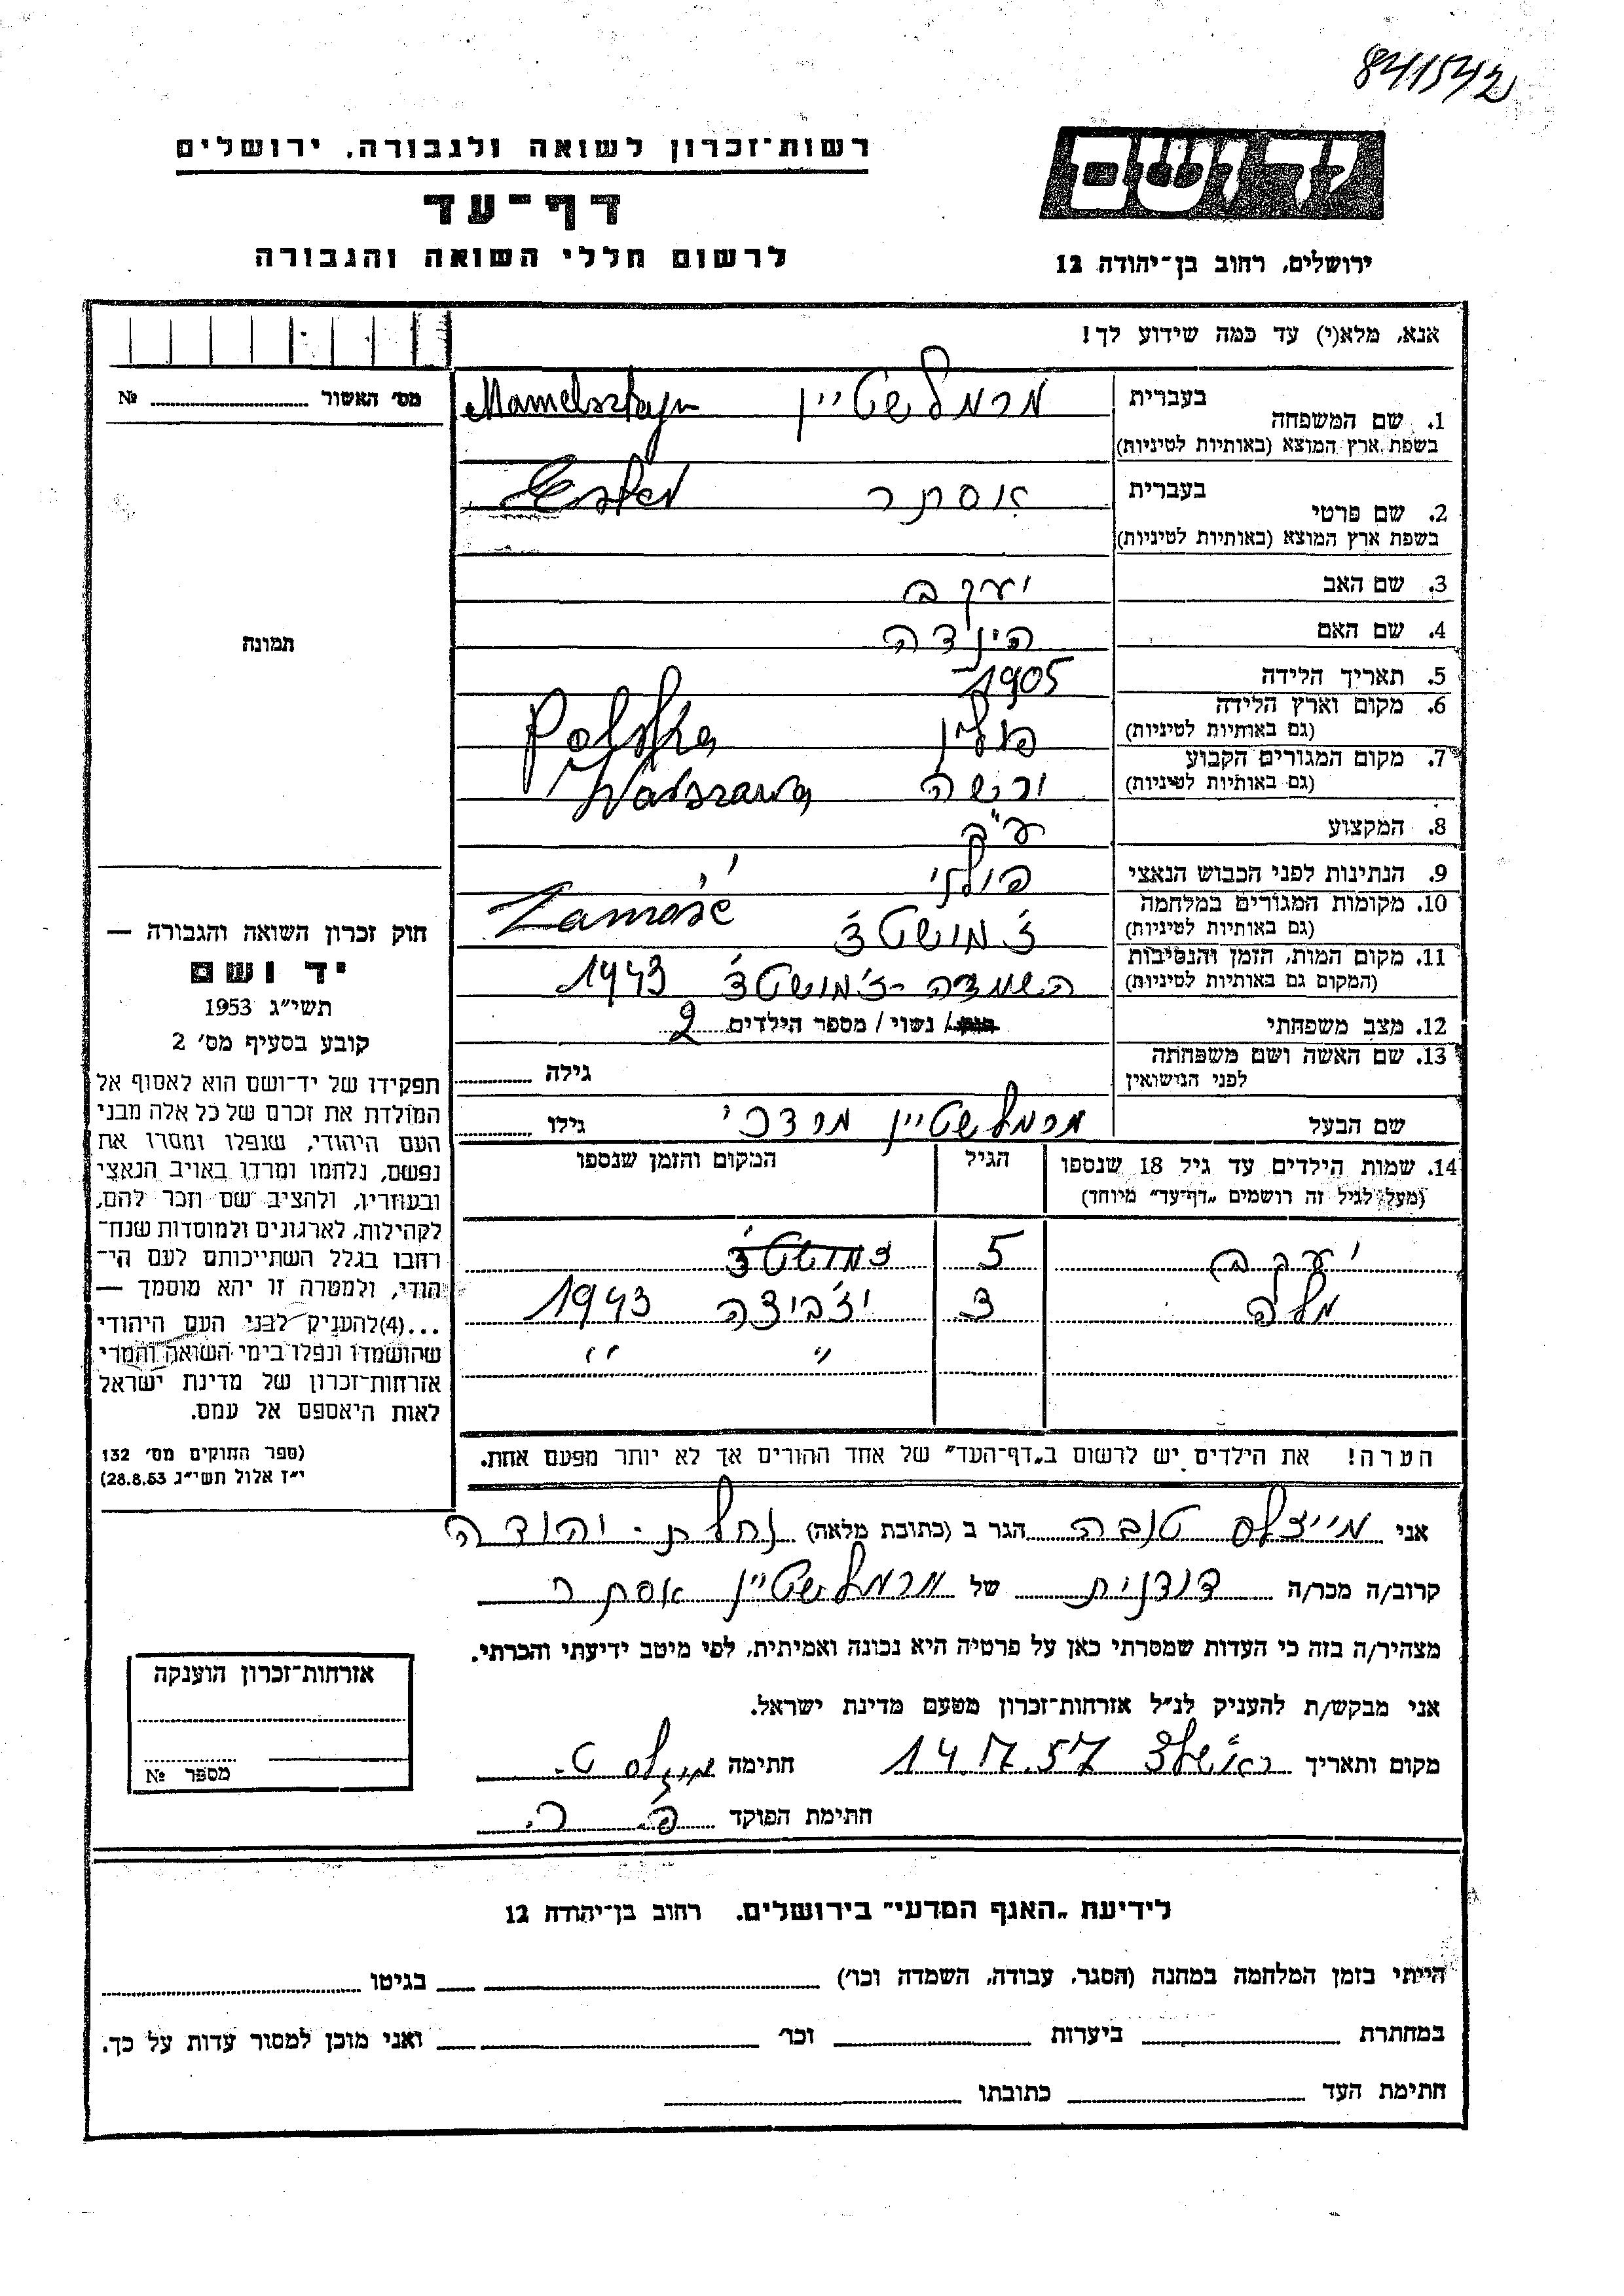 841542
יד ושם
ירושלים, רחוב בן־יהודה 12
רשות־זכרון לשואה ולגבורה, ירושלים
דף־עד
לרשום חללי השואה והגבורה
אנא, מלא(י) עד כמה שידוע לך!
מס׳ האשור № 
1. שם המשפחה בעברית מרמלשטיין Mamelsztayn
בשפת ארץ המוצא (באותיות לטיניות)
2. שם פרטי בעברית אסתר Ester
בשפת ארץ המוצא (באותיות לטיניות)
3. שם האב יעקב
4. שם האם הינדה
5. תאריך הלידה 1905
6. מקום וארץ הלידה פולין Polska
(גם באותיות לטיניות)
7. מקום המגורים הקבוע ורשה Warszawa
(גם באותיות לטיניות)
8. המקצוע עק״ב
9. הנתינות לפני הכבוש הנאצי פולני
10. מקומות המגורים במלחמה ז׳מושטצ׳ Zamość
(גם באותיות לטיניות)
11. מקום המות, הזמן והנסיבות השמדה - ז׳מושטצ׳ 1943
(המקום גם באותיות לטיניות)
12. מצב משפחתי רווק/ נשוי / מספר הילדים 2
13. שם האשה ושם משפחתה
לפני הנישואין גילה
שם הבעל מרמלשטיין מרדכי גילו
14. שמות הילדים עד גיל 18 שנספו הגיל המקום והזמן שנספו
(מעל לגיל זה רושמים „דף־עד״ מיוחד)
יעקב 5 צמושטצ׳
מלה 3 יזביצה 1943
״ ״
הערה! את הילדים יש לרשום ב„דף־העד״ של אחד ההורים אך לא יותר מפעם אחת.
תמונה
חוק זכרון השואה והגבורה —
יד ושם
תשי״ג 1953
קובע בסעיף מס׳ 2
תפקידו של יד־ושם הוא לאסוף אל
המולדת את זכרם של כל אלה מבני
העם היהודי, שנפלו ומסרו את
נפשם, נלחמו ומרדו באויב הנאצי
ובעוזריו, ולהציב שם וזכר להם,
לקהילות, לארגונים ולמוסדות שנח־
רחבו בגלל השתייכותם לעם הי־
הודי, ולמטרה זו יהא מוסמך —
...(4)להעניק לבני העם היהודי
שהושמדו ונפלו בימי השואה והמרי
אזרחות־זכרון של מדינת ישראל
לאות היאספם אל עמם.
(ספר החוקים מס׳ 132
י״ז אלול תשי״ג 28.8.53)
אני מייצלס טובה הגר ב (כתובת מלאה) נחלת - יהודה
קרוב/ה מכר/ה דודנית של מרמלשטיין אסתר
מצהיר/ה בזה כי העדות שמסרתי כאן על פרטיה היא נכונה ואמיתית, לפי מיטב ידיעתי והכרתי.
אני מבקש/ת להעניק לנ״ל אזרחות־זכרון מטעם מדינת ישראל.
מקום ותאריך ראשל״צ 14.IV.57 חתימה מיצלס ט.
חתימת הפוקד פ. ר.
אזרחות־זכרון הוענקה
מספר №
לידיעת „האגף המדעי״ בירושלים. רחוב בן־יהודה 12
הייתי בזמן המלחמה במחנה (הסגר, עבודה, השמדה וכו׳) בגיטו
במחתרת ביערות וכו׳ ואני מוכן למסור עדות על כך.
חתימת העד כתובתו